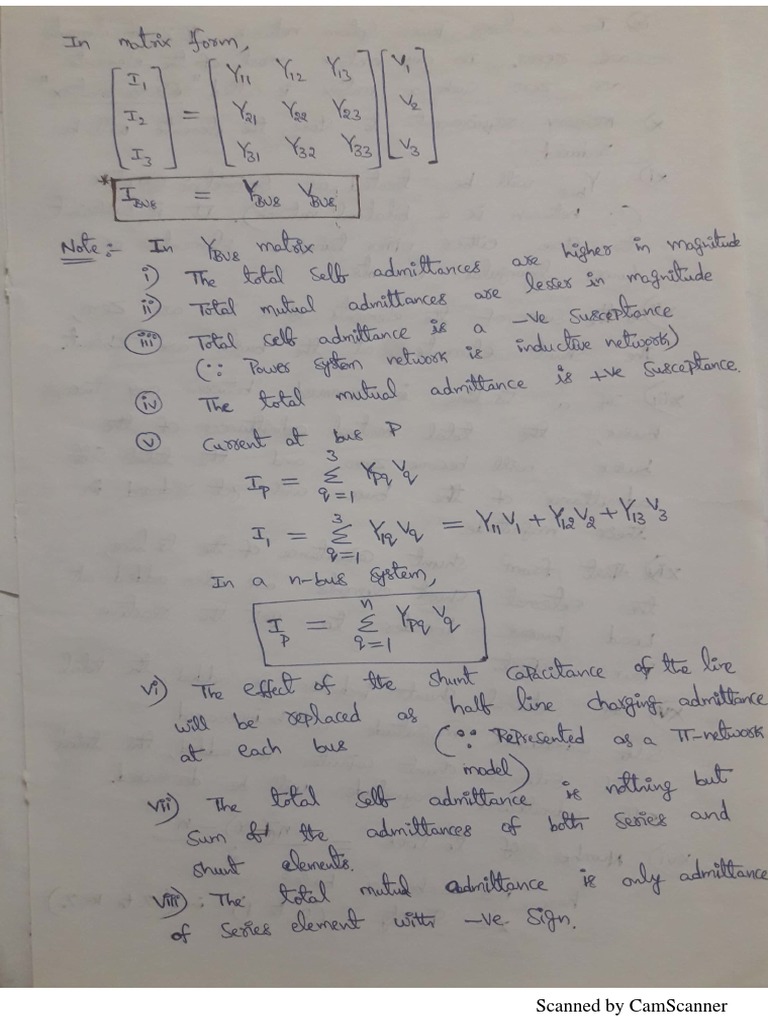 In matrix form,
[I1 I2 I3] = [Y11 Y12 Y13; Y21 Y22 Y23; Y31 Y32 Y33] [V1 V2 V3]
* IBUS = YBUS VBUS
Note:- In YBUS matrix
i) The total self admittances are higher in magnitude
ii) Total mutual admittances are lesser in magnitude
iii) Total self admittance is a -ve susceptance
(∵ Power system network is inductive network)
iv) The total mutual admittance is +ve susceptance.
v) current at bus P
Ip = Σ_{q=1}^{3} Ypq Vq
I1 = Σ_{q=1}^{3} Y1q Vq = Y11V1 + Y12V2 + Y13V3
In a n-bus system,
Ip = Σ_{q=1}^{n} Ypq Vq
vi) The effect of the shunt capacitance of the line
will be replaced as half line charging admittance
at each bus (∵ Represented as a π-network
model)
vii) The total self admittance is nothing but
sum of the admittances of both series and
shunt elements.
viii) The total mutual admittance is only admittance
of series element with -ve sign.
Scanned by CamScanner